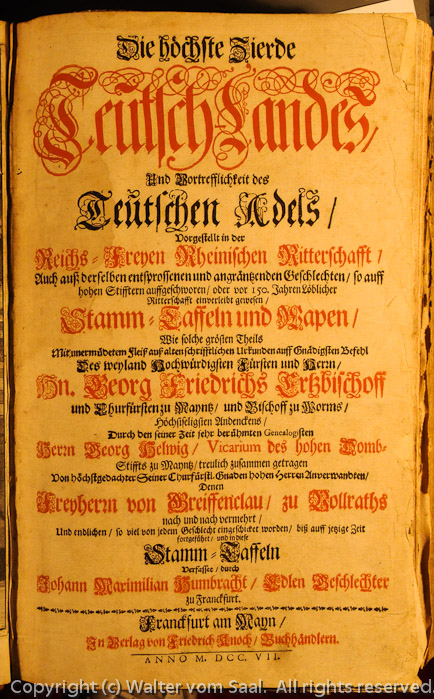 Die höchste Zierde
Teutsch-Landes/
Und Vortrefflichkeit des
Teutschen Adels/
Vorgestellt in der
Reichs-Freyen Rheinischen Ritterschafft/
Auch auß derselben entsprossenen und angräntzenden Geschlechten/ so auff
hohen Stifftern auffgeschworen/ oder vor 150. Jahren Löblicher
Ritterschafft einverleibt gewesen/
Stamm-Taffeln und Wapen/
Wie solche gröstẽn Theils
Mit unermüdetem Fleiß auß alten schrifftlichen Urkunden auff Gnädigsten Befehl
Des weyland Hochwürdigsten Fürsten und Herrn/
Hn. Georg Friedrichs Ertzbischoff
und Churfürsten zu Mayntz/ und Bischoff zu Worms/
Höchstseligsten Andenckens/
Durch den seiner Zeit sehr berühmten Genealogisten
Herrn Georg Helwig/ Vicarium des hohen Domb-
Stiffts zu Mayntz/ treulich zusammen getragen
Von höchstgedachter Seiner Churfürstl. Gnaden hohen Herren Anverwandten/
Denen
Freyherrn von Greiffenclau/ zu Vollraths
nach und nach vermehrt/
Und endlichen/ so viel von jedem Geschlecht eingeschicket worden/ biß auff jetzige Zeit
fortgeführt/ und in diese
Stamm-Taffeln
Verfasset/ durch
Johann Maximilian Humbracht/ Edlen Geschlechter
zu Franckfurt.
Franckfurt am Mayn/
In Verlag von Friedrich Knoch/ Buchhändlern.
ANNO M. DCC. VII.
Copyright (c) Walter vom Saal. All rights reserved